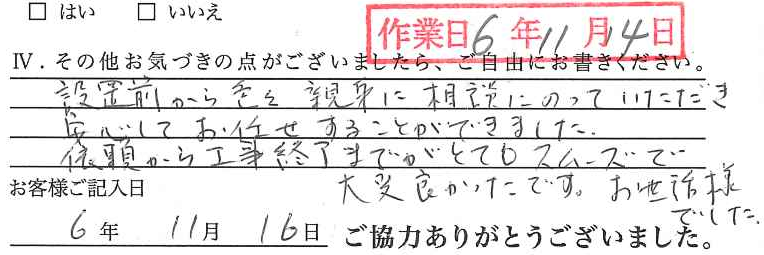 □ はい □ いいえ
作業日 6年11月14日
Ⅳ．その他お気づきの点がございましたら、ご自由にお書きください。
設置前から色々親身に相談にのっていただき
安心してお任せすることができました。
依頼から工事終了までがとてもスムーズで
大変良かったです。お世話様
でした。
お客様ご記入日
6年 11月 16日 ご協力ありがとうございました。